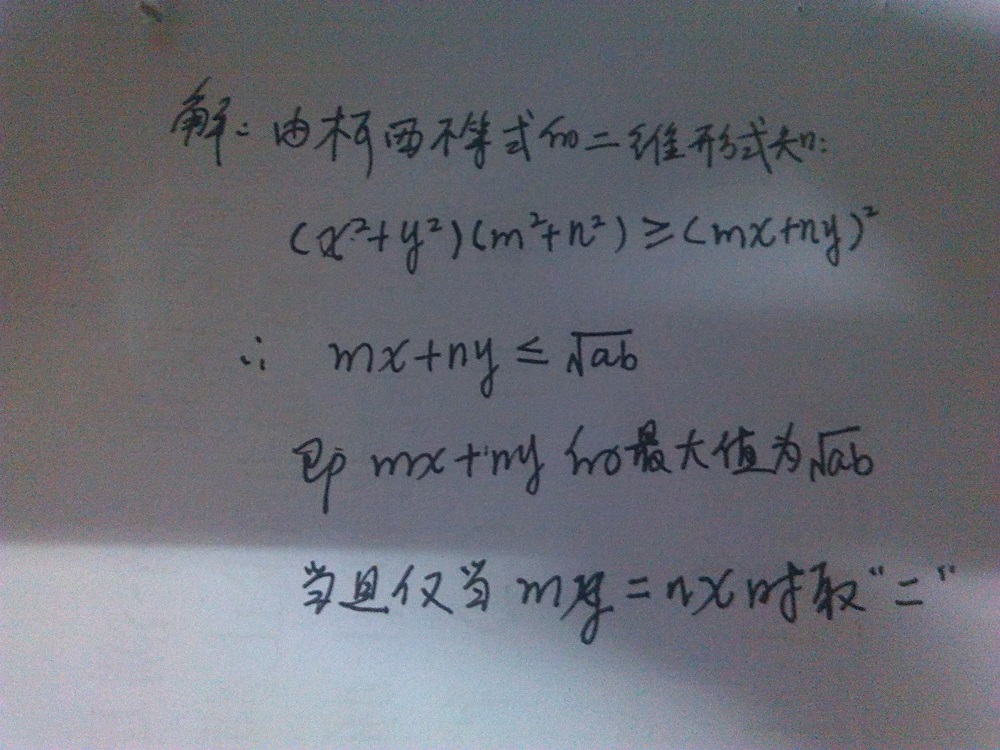 解:由柯西不等式的二维形式知:
(x²+y²)(m²+n²)≥(mx+ny)²
∴ mx+ny≤√ab
即 mx+ny的最大值为√ab
当且仅当my=nx时取“=”